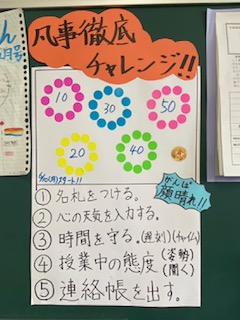 ん
月号
凡事徹底
チャレンジ!!
10
30
50
20
40
スタート!!
がんば
顔晴れ!!
① 名札をつける。
② 心の天気を入力する。
③ 時間を守る。(遅刻)(チャイム)
④ 授業中の態度(姿勢)(聞く)
⑤ 連絡帳を出す。